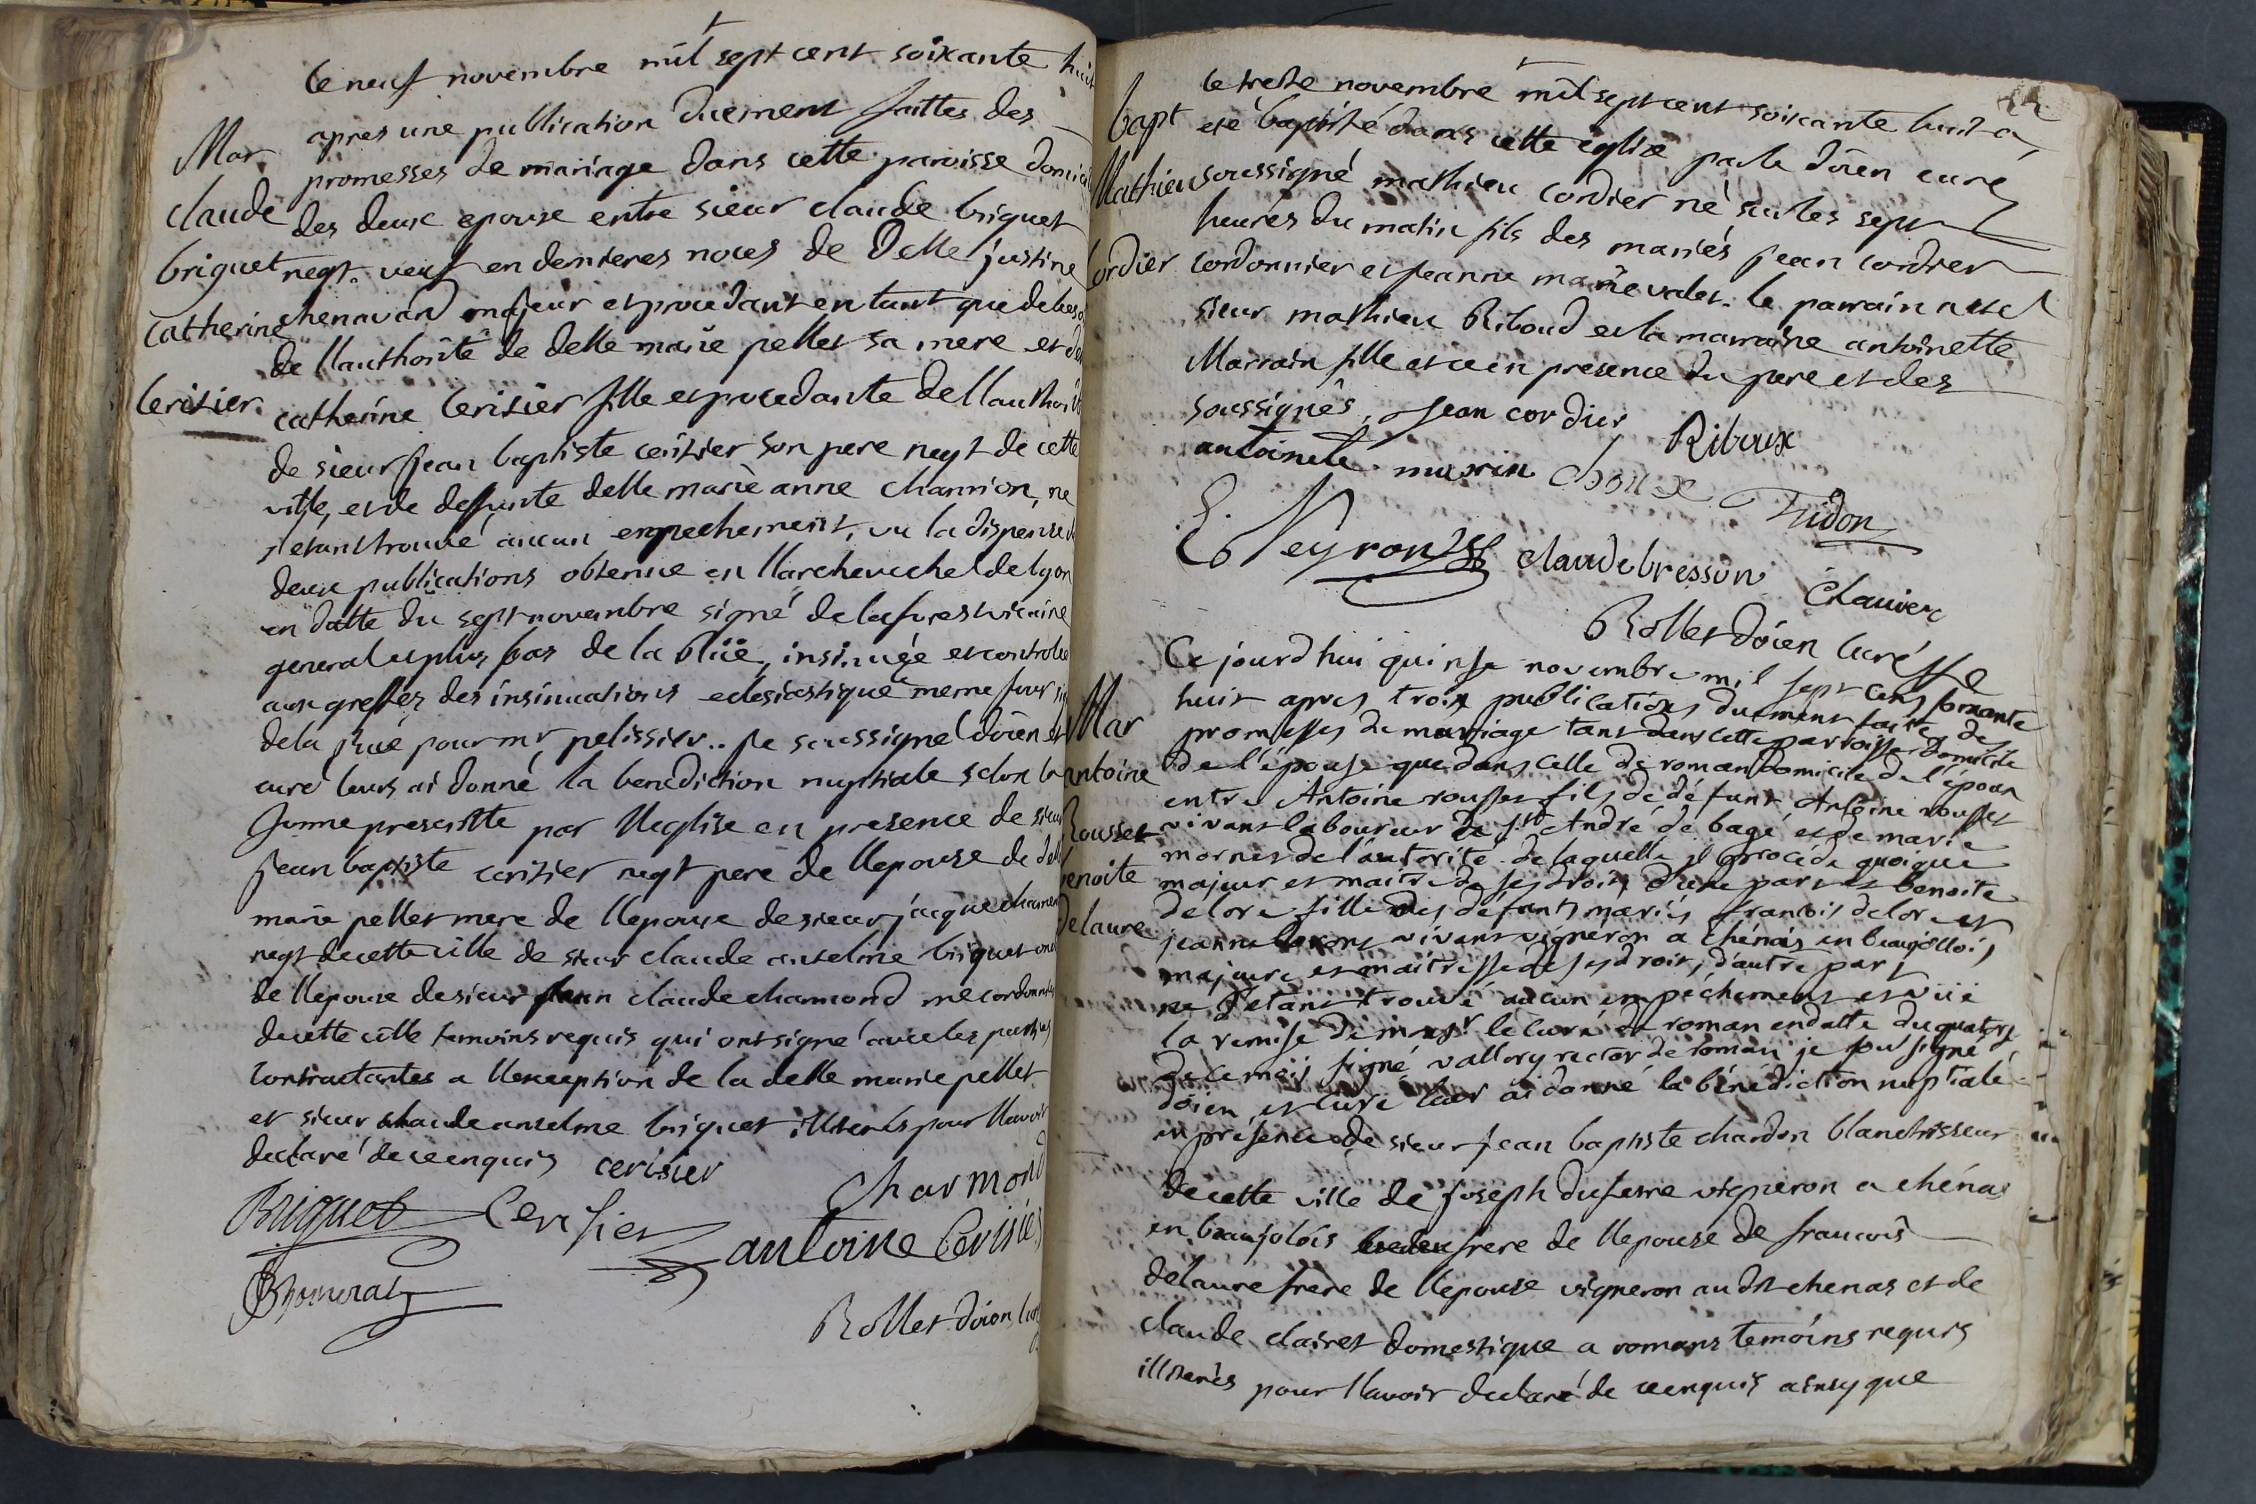 le neuf novembre mil sept cent soixante huit
apres une publication duement faittes des
Mar
promesses de mariage dans cette paroisse domicile
claude
des deux epoux entre sieur claude briquet
briquet
negt. veuf en dernieres noces de Delle justine
catherine
chenavard majeur et procedant en tant que de besoin
de llauthorité de delle marie pellet sa mere et delle
Cerisier
catherine Cerisier fille et procedante de llauthorité
de sieur jean baptiste cerisier son pere negt de cette
ville, et de deffunte delle marie anne charrion, ne
s'etant trouvé aucun empechement, vu la dispense de
deux publications obtenue en llarcheveché de lyon
en datte du sept novembre signé de lafores vicaire
general et plus bas de la pluë, insinuée et controlee
aux greffes des insinuations eclesiastique meme jour
dela pluë pour mr pelissier.. je soussigné doïen et
curé leurs ai donné la benediction nuptiale selon la
forme prescritte par lleglise en presence de sieur
jean baptiste cerisier negt pere de llepouse de delle
marie pellet mere de llepoux de sieur jacque
negt de cette ville de sieur claude anselme briquet
de llepoux de sieur jean claude chamond me cordonnier
de cette ville temoins requis qui ont signé avec les parties
Contractantes a llexception de la delle marie pellet
et sieur claude anselme briquet illiterés pour llavoir
declaré de ce enquis cerisier
Charmond
Briquet Cerisier antoine Cerisier
Rollet doïen curé
bapt
Mathieu
Cordier
le treize novembre mil sept cent soixante huit a
eté baptisé dans cette eglise par le doïen curé
soussigné mathieu cordier né sur les sept
heures du matin fils des mariés jean cordier
cordonnier et jeanne marie valet. le parrain a eté
sieur mathieu Riboud et la marraine antoinette
Marrain fille et ce en presence du pere et des
soussignés. jean cordier Riboux
antoinete marin
Tridon
E. Neyron claude bresson Chauvet
Rollet doïen Curé
Mar
antoine
Rousset
benoite
Delaure
Ce jourd'hui quinse novembre mil sept cens soixante
huit apres trois publications duement faites de
promesses de mariage tant dans cette parroisse domicile
de l'épouse que dans celle de roman domicile de l'époux
entre Antoine rousset fils de défunt Antoine rousset
vivant laboureur de st André de bagé et de marie
mornet de l'autorité de laquelle il procéde quoique
majeur et maitre de ses droits d'une part et benoite
delore fille des défunts mariés francois delore et
jeanne vivant vigneron a chénas en beaujollois
majeure et maitresse de ses droits, d'autre part
ne s'etant trouvé aucun empéchement et vüe
la remise de monsr le curé de roman en datte du quatorze
de ce mois signé vallory rector de roman je soussigné
doïen et curé leur ai donné la bénédiction nuptiale
en présence de sieur jean baptiste chardon blanchisseur
de cette ville de joseph dufesne vigneron a chénas
en beaujolois frere de llepouse de francois
delaure frere de llepouse vigneron au dit chenas et de
claude clairet domestique a romans temoins requis
illiterés pour llavoir declaré de ce enquis ainsy que